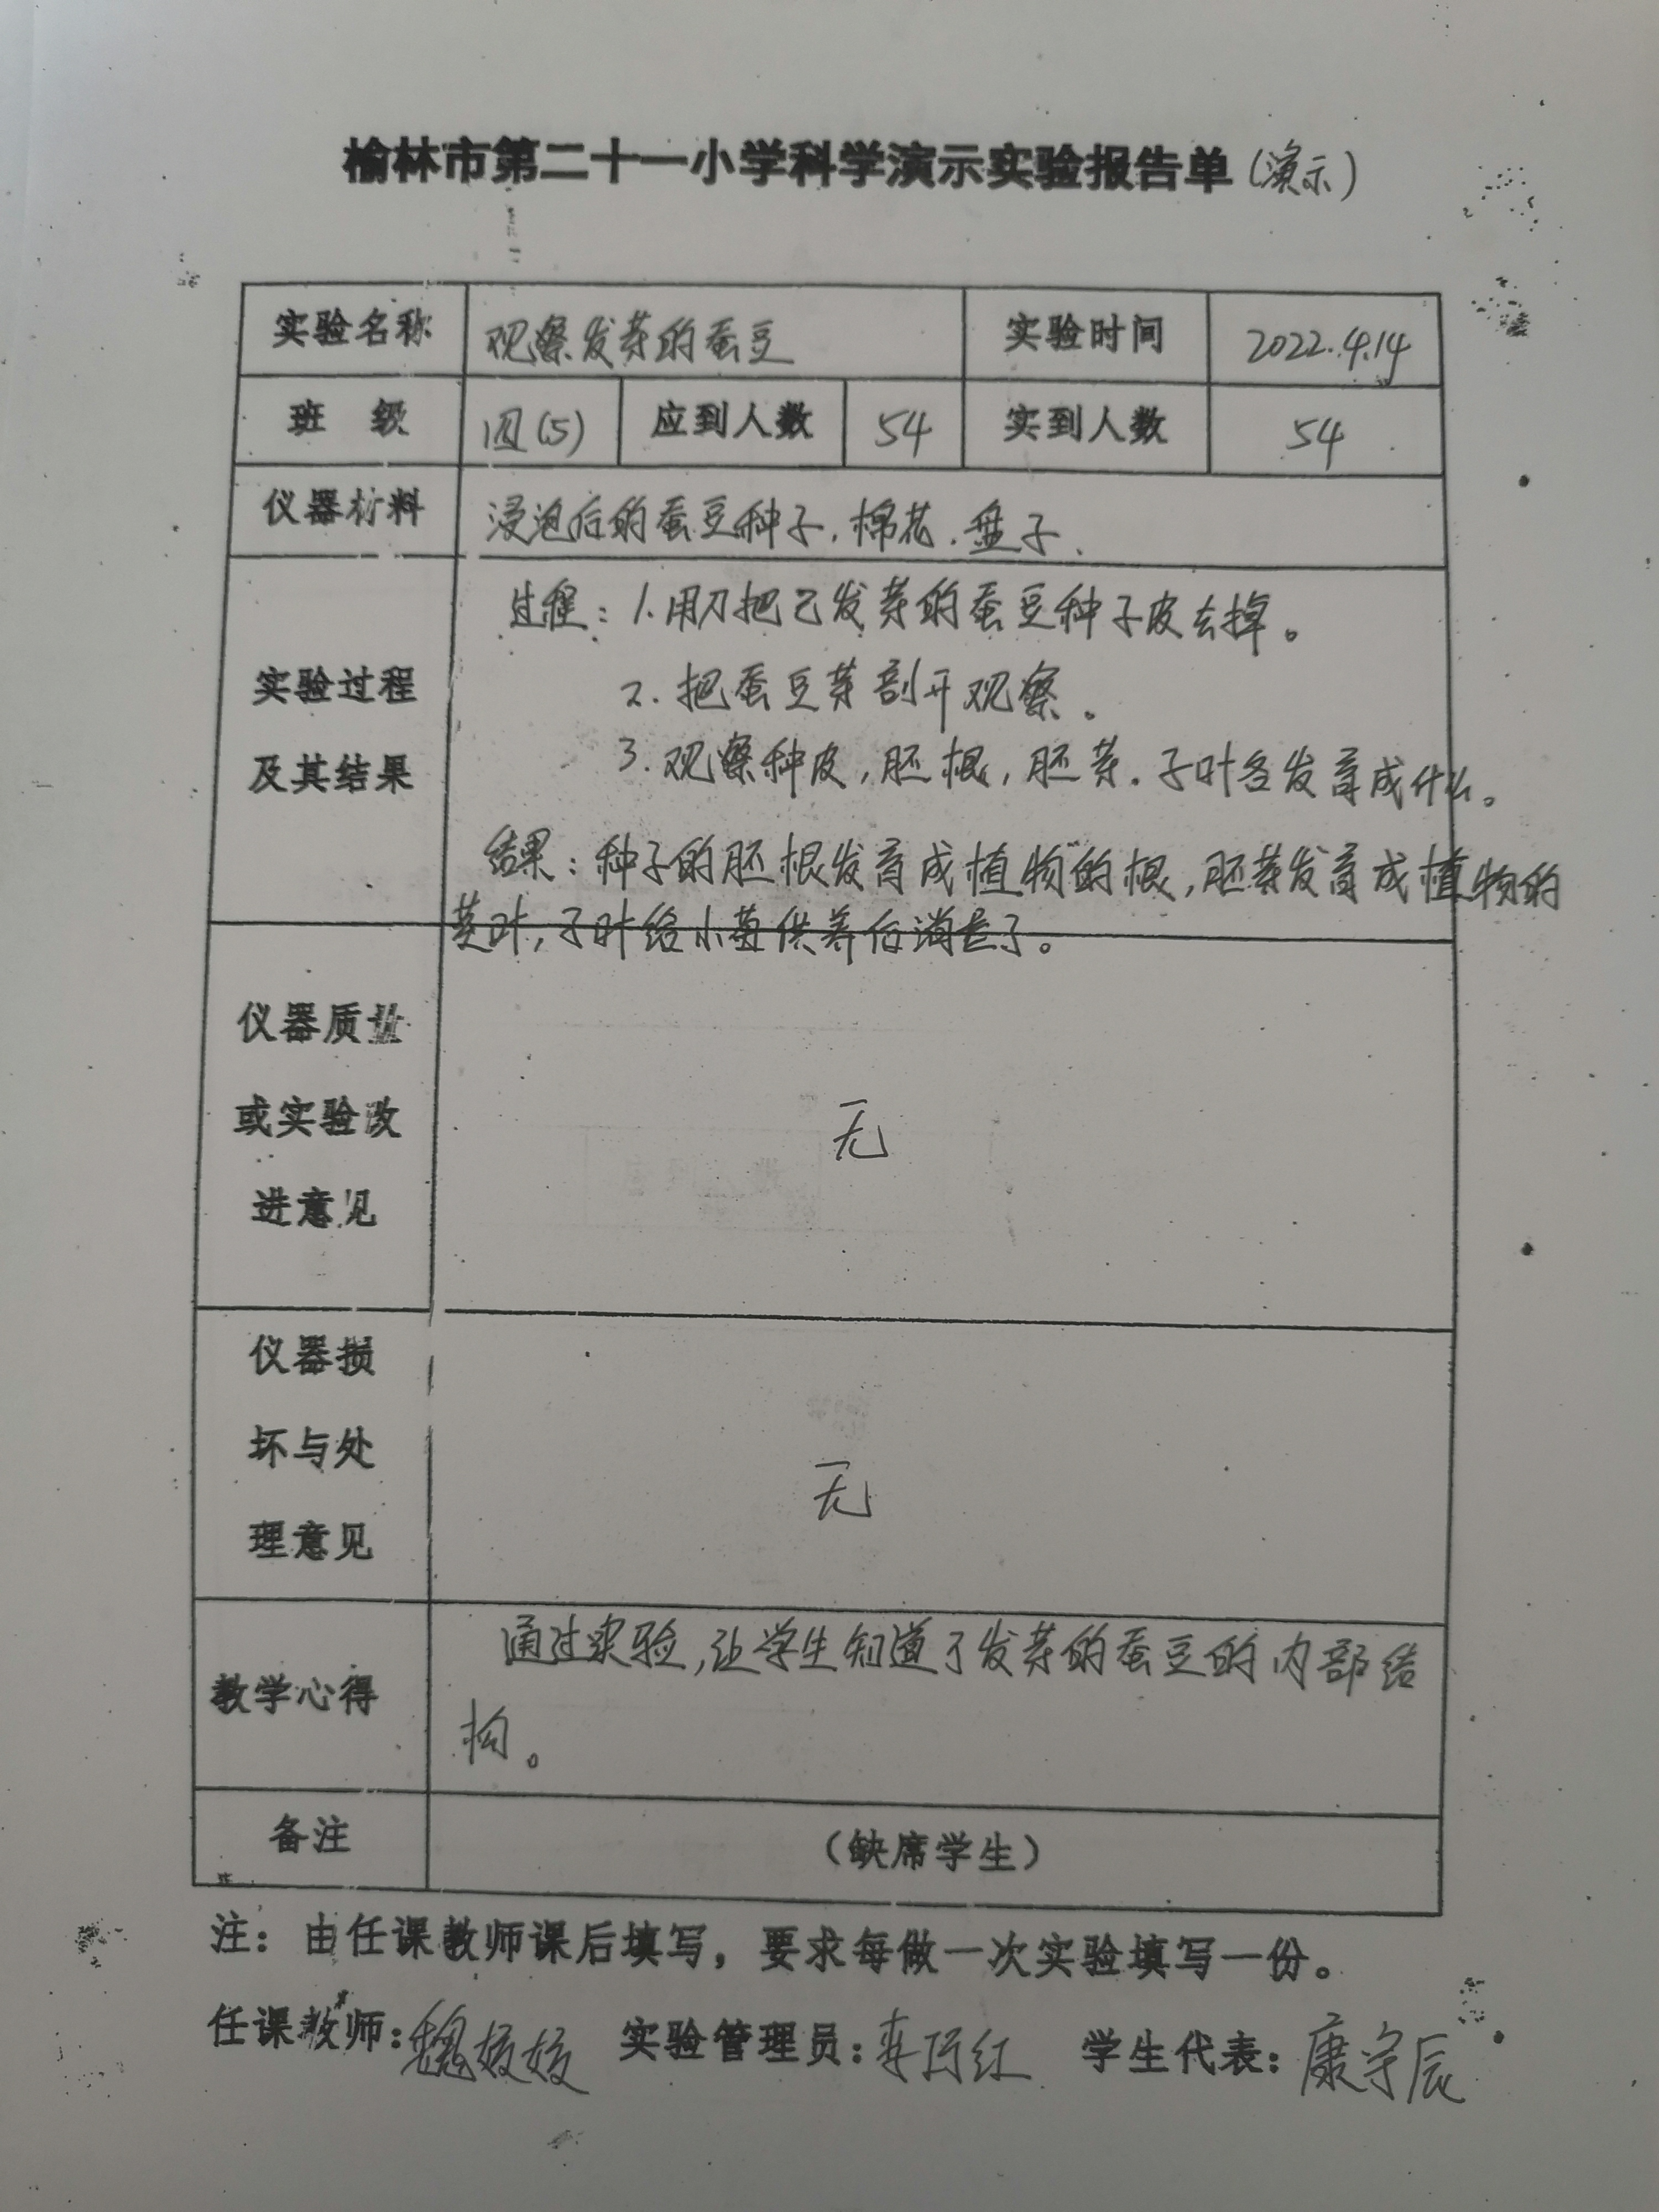 榆林市第二十一小学科学演示实验报告单（演示）
实验名称 观察发芽的蚕豆 实验时间 2022.4.14
班 级 四(5) 应到人数 54 实到人数 54
仪器材料 浸泡后的蚕豆种子，棉花、盘子、
过程：1.用刀把已发芽的蚕豆种子皮去掉。
2.把蚕豆芽剖开观察。
实验过程
3.观察种皮，胚根，胚芽．子叶各发育成什么。
及其结果
结果：种子的胚根发育成植物的根，胚芽发育成植物的
茎叶，子叶给小苗供养后消失了。
仪器质量
或实验改
进意见
无
仪器损
坏与处
理意见
无
教学心得
通过实验，让学生知道了发芽的蚕豆的内部结
构。
备注 （缺席学生）
注：由任课教师课后填写，要求每做一次实验填写一份。
任课教师：魏姣姣 实验管理员：李 红 学生代表：康宇辰